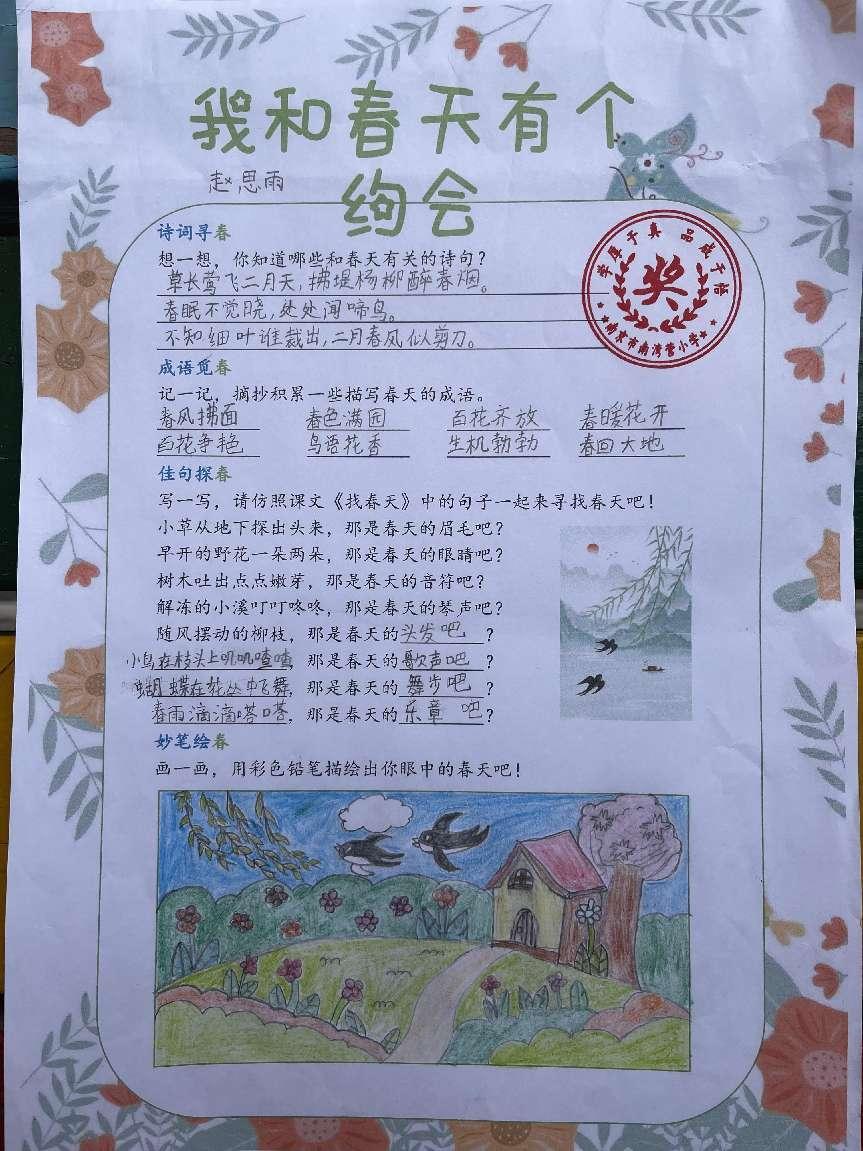 我和春天有个
绚会
赵思雨
诗词寻春
想一想，你知道哪些和春天有关的诗句？
草长莺飞二月天，拂堤杨柳醉春烟。
春眠不觉晓，处处闻啼鸟。
不知细叶谁裁出，二月春风似剪刀。
学厚于真 品成于恪
奖
南京市南湾营小学
成语觅春
记一记，摘抄积累一些描写春天的成语。
春风拂面 春色满园 百花齐放 春暖花开
百花争艳 鸟语花香 生机勃勃 春回大地
佳句探春
写一写，请仿照课文《找春天》中的句子一起来寻找春天吧！
小草从地下探出头来，那是春天的眉毛吧？
早开的野花一朵两朵，那是春天的眼睛吧？
树木吐出点点嫩芽，那是春天的音符吧？
解冻的小溪叮叮咚咚，那是春天的琴声吧？
随风摆动的柳枝，那是春天的头发吧？
小鸟在枝头上叽叽喳喳，那是春天的歌声吧？
蝴蝶在花丛中飞舞，那是春天的舞步吧？
春雨滴滴嗒嗒，那是春天的乐章吧？
妙笔绘春
画一画，用彩色铅笔描绘出你眼中的春天吧！